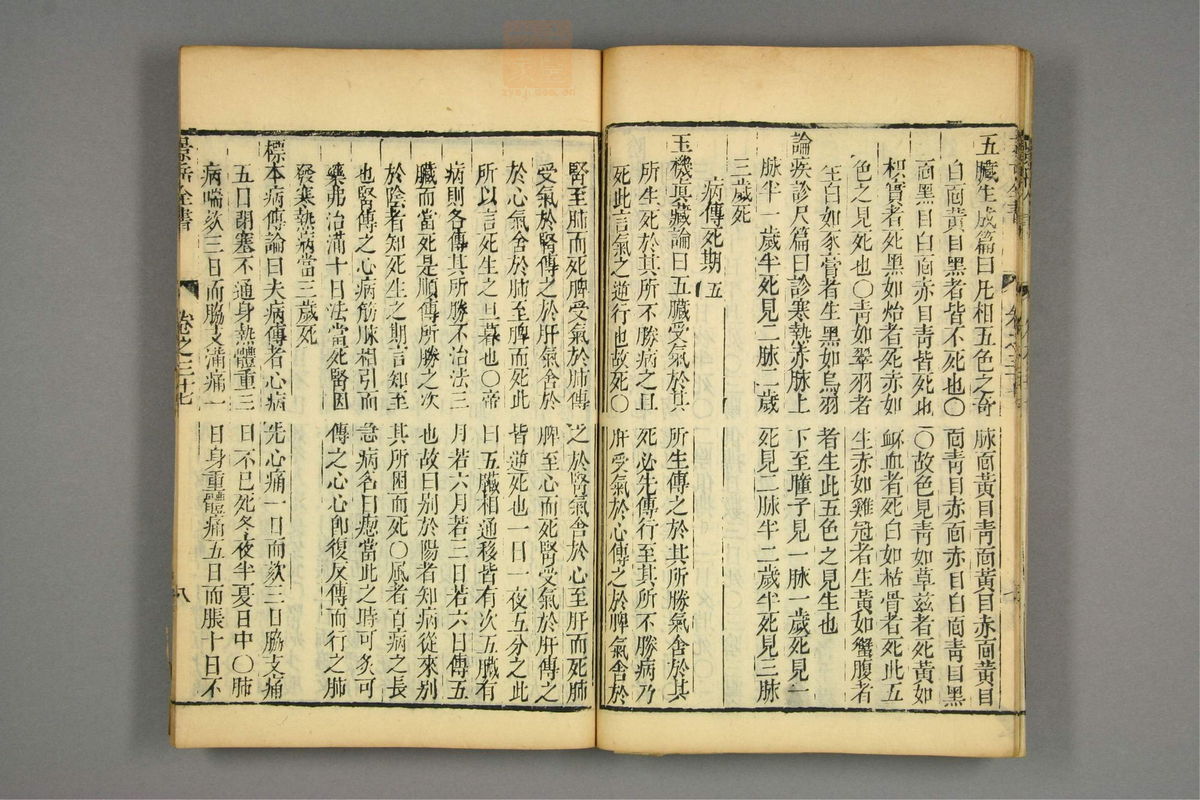 五臟生成篇曰凡相五色之奇脉面黃目青面黃目赤面黃目
白面黃目黑者皆不死也〇面青目赤面赤目白面青目黑
面黑目白面赤目青皆死也〇故色見青如草茲者死黃如
枳實者死黑如炲者死赤如衃血者死白如枯骨者死此五
色之見死也〇青如翠羽者生赤如雞冠者生黃如蟹腹者
生白如豕膏者生黑如烏羽者生此五色之見生也
論疾診尺篇曰診寒熱赤脉上下至瞳子見一脉一歲死見一
脉半一歲半死見二脉二歲死見二脉半二歲半死見三脉
三歲死
病傳死期 五
玉機真藏論曰五臟受氣於其所生傳之於其所勝氣舍於其
所生死於其所不勝病之且死必先傳行至其所不勝病乃
死此言氣之逆行也故死〇肝受氣於心傳之於脾氣舍於
腎至肺而死脾受氣於肺傳之於腎氣舍於心至肝而死肺
受氣於腎傳之於肝氣舍於脾至心而死腎受氣於肝傳之
於心氣舍於肺至脾而死此皆逆死也一日一夜五分之此
所以言死生之旦暮也〇帝曰五臟相通移皆有次五臟有
病則各傳其所勝不治法三月若六月若三日若六日傳五
臟而當死是順傳所勝之次也故曰別於陽者知病從來別
於陰者知死生之期言知至其所困而死〇風者百病之長
也腎傳之心病筋脉相引而急病名曰瘛當此之時可灸可
藥弗治滿十日法當死腎因傳之心心卽復反傳而行之肺
發寒熱病當三歲死
標本病傳論曰夫病傳者心病先心痛一日而欬三日脇支痛
五日閉塞不通身熱體重三日不已死冬夜半夏日中〇肺
病喘欬三日而脇支滿痛一日身重體痛五日而脹十日不
景岳全書 卷之三十七 八